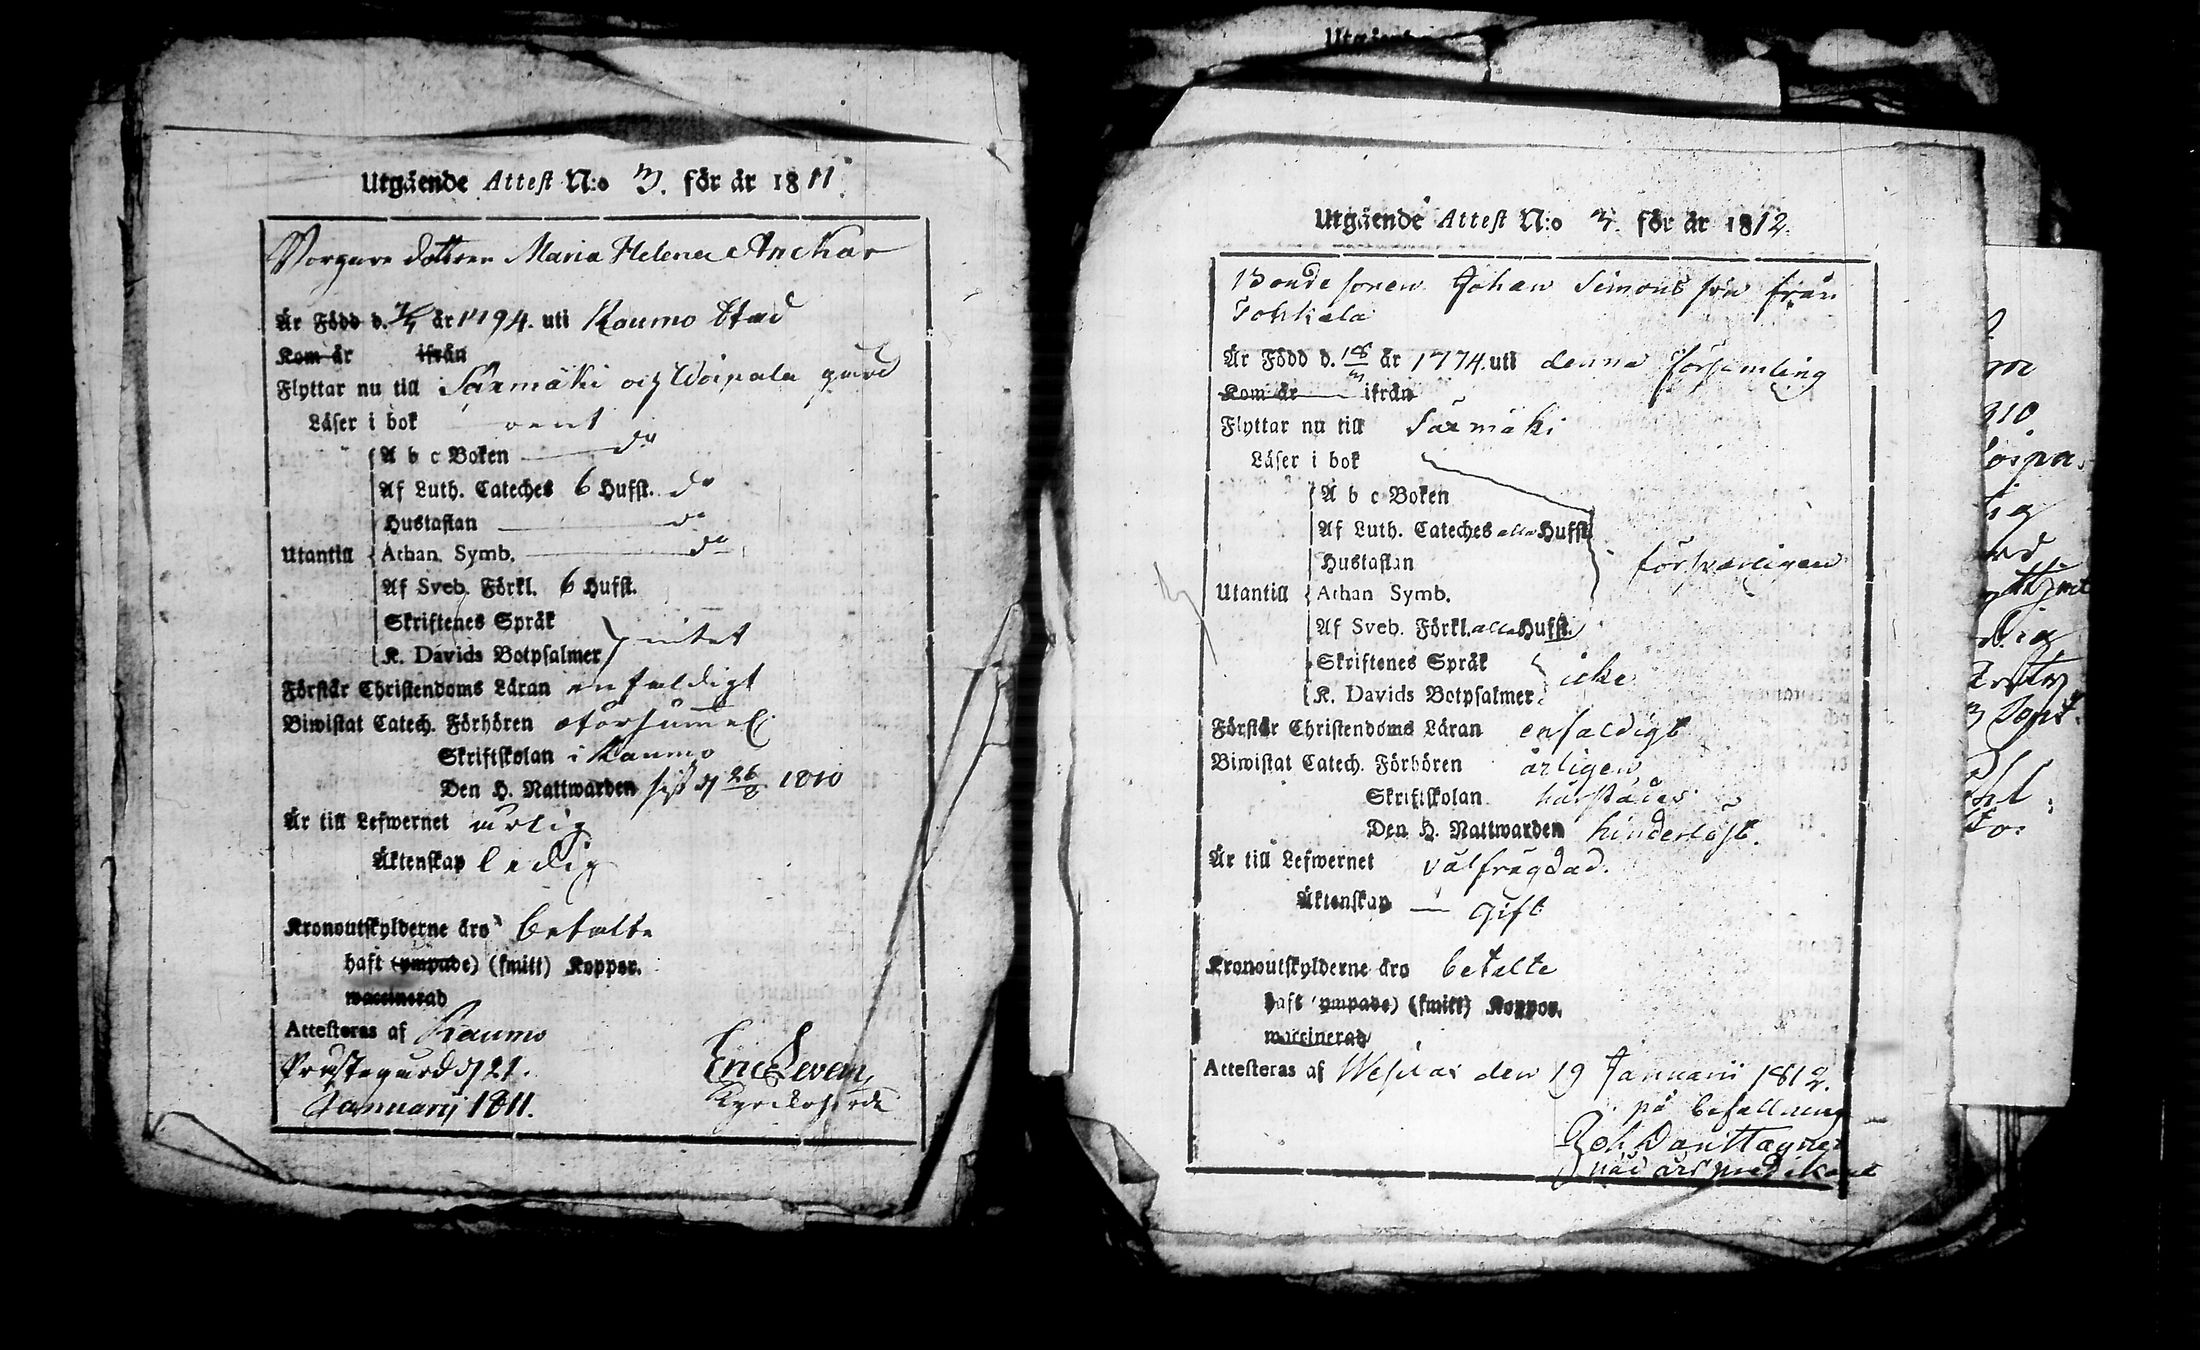 Utgående Attest N:o 3. för år 1811
Borgare dottren Maria Helena Anckar
Är Född d. år 1794. uti Raumo Stad
Kom år ifrån
Flyttar nu till Särmäki och Woipala gård
Läser i bok rent
A b c Boken do
Af Luth. Cateches 6 Hufst. do
Hustaflan do
Utantill Athan. Symb. do
Af Sveb. Förkl. 6 Hufst.
Skriftenes Språk
K. Davids Botpsalmer intet
Förstår Christendoms Läran enfaldigt
Biwistat Catech. Förhören oförsummel.
Skriftskolan i Raumo
Den H. Nattwarden sist d 26/8 1810
Är till Lefwernet ärlig
Äktenskap ledig
Kronoutskylderne äro betalte
haft (ympade) (smitt) Koppor.
waccinerad
Attesteras af Raumo
Prästegård d 21.
Januarij 1811.
Eric Leven
Kyrckoherde
Utgående Attest N:o 3. för år 1812.
Bondesonen Johan Simonsson från
Tohkala
Är Född d. 18/3 år 1774. uti denna församling
Kom år ifrån
Flyttar nu till Särmäki
Läser i bok
A b c Boken
Af Luth. Cateches alla Hufst.
Hustaflan
försvarligen
Utantill Athan Symb.
Af Sveb. Förkl. alla Hufst.
Skriftenes Språk
icke
K. Davids Botpsalmer
Förstår Christendoms Läran enfaldigt
Biwistat Catech. Förhören årligen
Skriftskolan härstädes
Den H. Nattwarden hinderlöst.
Är till Lefwernet välfrägdad.
Äktenskap gift
Kronoutskylderne äro betalte
haft (ympade) (smitt) Koppor.
waccinerad
Attesteras af Wesilax den 19 Januarii 1812.
på befallning
Joh Wanttagner
nådårspredikant